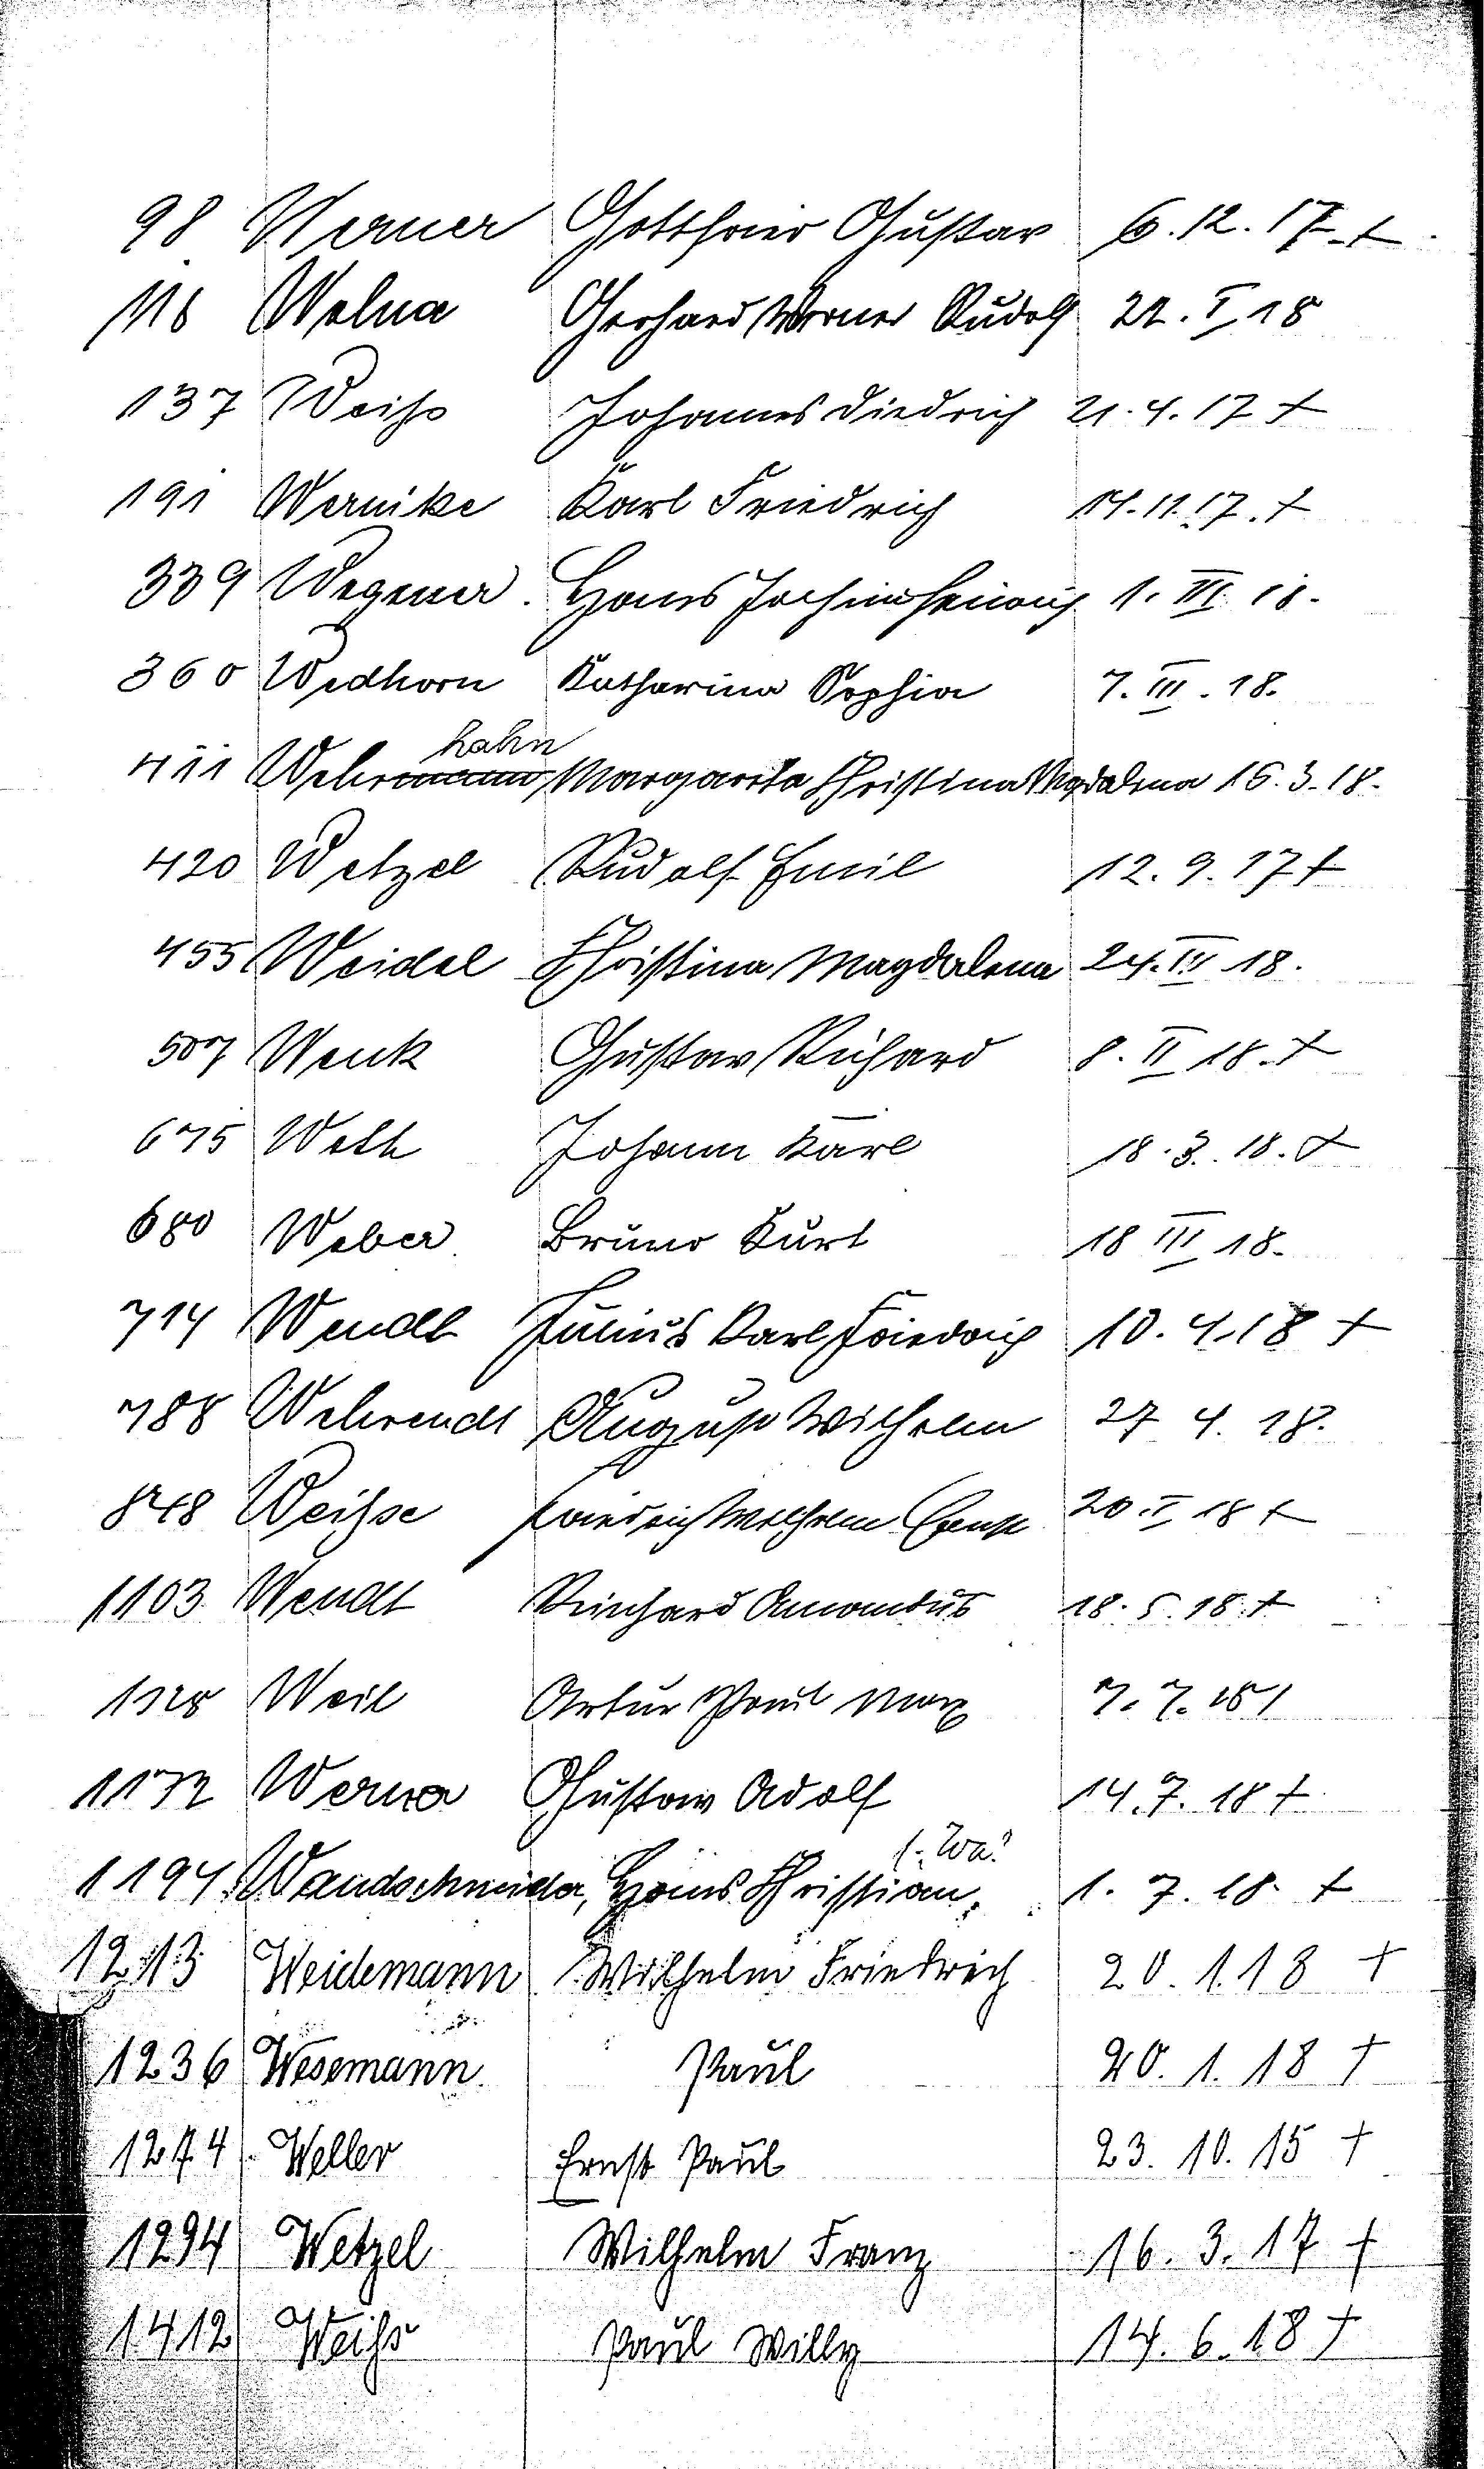 98 Werner Gotthard Gustav 6.12.17 +
116 Welna Gerhard Werner Rudolf 22. I 18
137 Weiß Johannes Diedrich 21.4.17 +
191 Wernike Karl Friedrich 14.11.17. +
339 Wegener. Hans Jochim Heinrich 1. III. 18.
360 Wedhorn Katharina Sophia 7. III. 18.
hahn
411 Wehrmann, Margareta Christina Magdalena 15.3.18.
420 Wetzel Rudolf Emil 12.9.17 +
455 Weidel Christina Magdalena 24. III 18.
507 Wenk Gustav Richard 8. II 18. +
675 Weth Johann Karl 18.3.18. +
680 Weber Bruno Kurt 18 III 18.
714 Wendt Julius Karl Friedrich 10.4.18 +
788 Wehrendt August Wilhelm 27 4. 18.
848 Weiße Friedrich Wilhelm Ernst 20. I 18 +
1103 Wendt Reinhard Amandus 18.5.18. +
1128 Weil Artur Paul Max 7.7.18 /
1172 Werner Gustav Adolf 14.7.18 +
f. Wa!
1194. Wandschneider, Hans Christian, 1. 7. 18. +
1213 Weidemann Wilhelm Friedrich 20.1.18 +
1236 Wesemann Paul 20. 1. 18 +
1274 Weller Ernst Paul 23. 10. 15 +
1294 Wetzel Wilhelm Franz 16. 3. 17 +
1412 Weiß Paul Willy 14. 6. 18 +